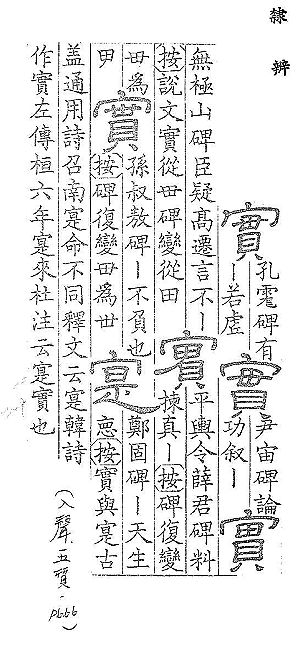 隸辨
實
孔碑有
ー若虛
實
尹宙碑論
功叙ー
實
無極山碑臣疑高遷言不ー
按說文實從毌碑變從田
實
平輿令薛君碑料
揀真ー按碑復變
毌為
甲
實
孫叔敖碑ー不負也
按碑復變毌為丗
寔
鄭固碑ー天生
悳按實與寔古
盖通用詩召南寔命不同釋文云寔韓詩
作實左傳桓六年寔來杜注云寔實也
(入聲.五質.p666)